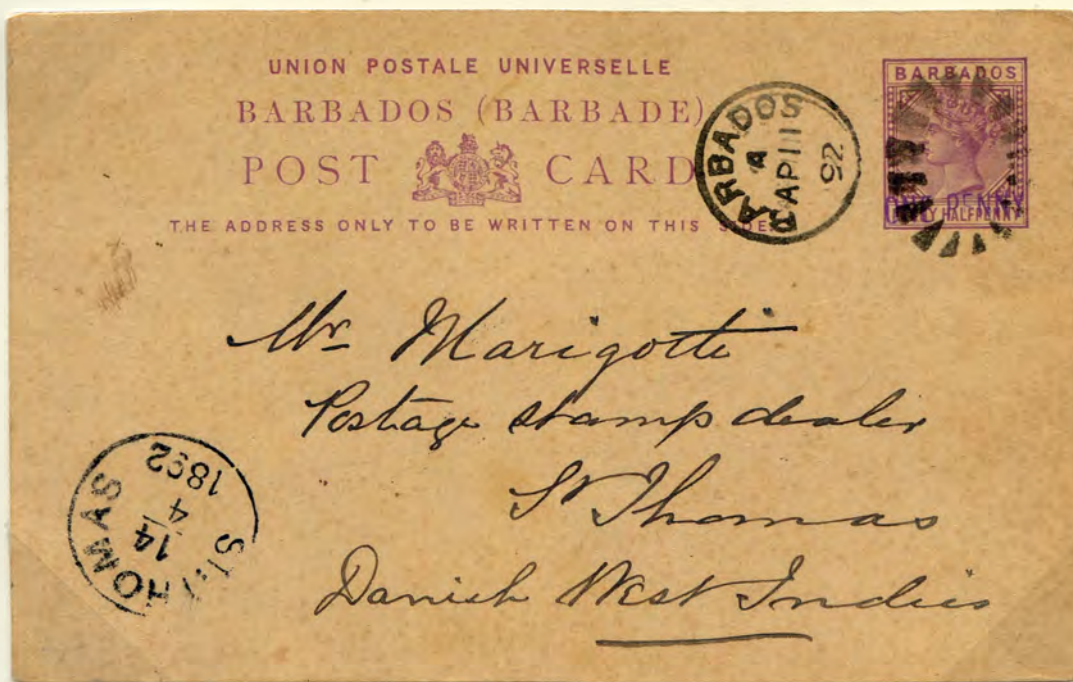 UNION POSTALE UNIVERSELLE
BARBADOS (BARBADE)
POST CARD
THE ADDRESS ONLY TO BE WRITTEN ON THIS SIDE
BARBADOS
A
AP 11
92
BARBADOS
ONE PENNY
HALFPENNY
Mr Marigotti
Postage stamp dealer
St Thomas
Danish West Indies
ST. THOMAS
14
4
1892